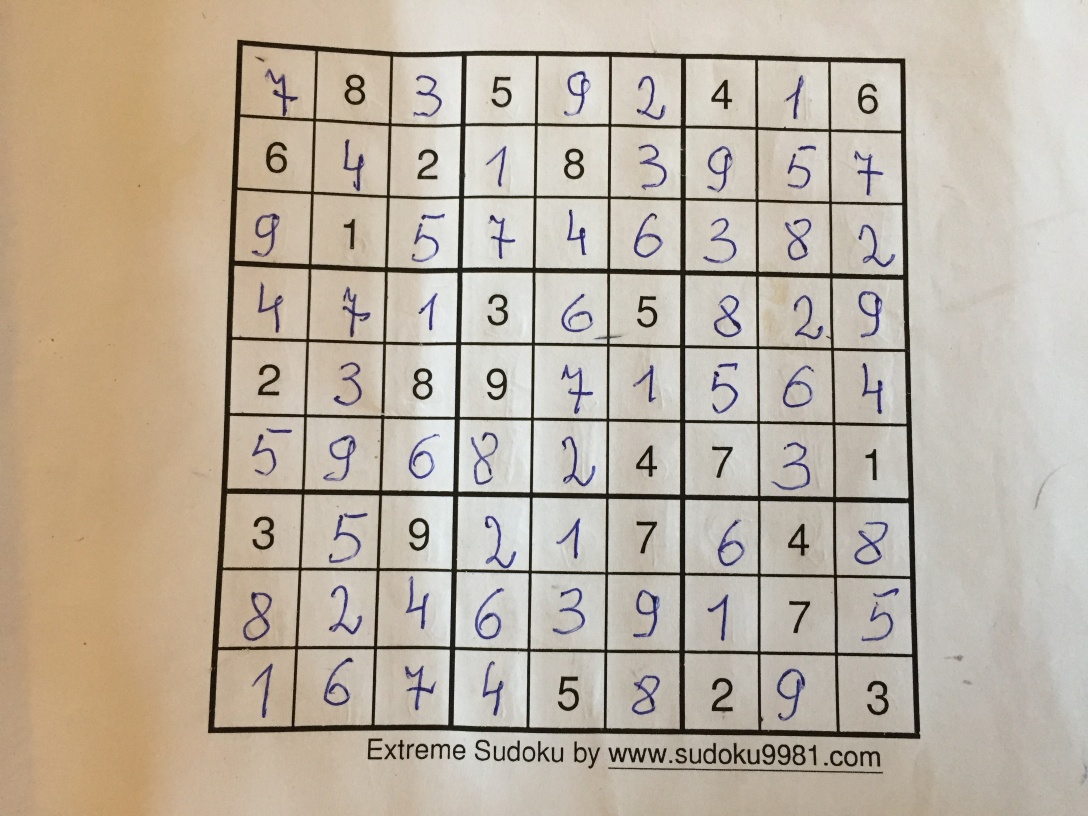 7 8 3 5 9 2 4 1 6
6 4 2 1 8 3 9 5 7
9 1 5 7 4 6 3 8 2
4 7 1 3 6 5 8 2 9
2 3 8 9 7 1 5 6 4
5 9 6 8 2 4 7 3 1
3 5 9 2 1 7 6 4 8
8 2 4 6 3 9 1 7 5
1 6 7 4 5 8 2 9 3
Extreme Sudoku by www.sudoku9981.com